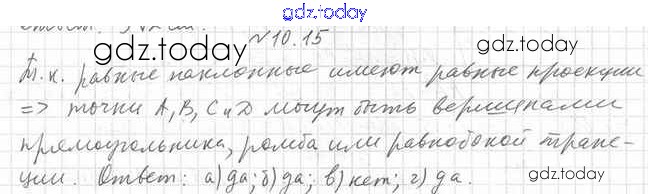 gdz.today
№10.15
gdz.today gdz.today
Т.к. равные наклонные имеют равные проекции
=> точки A, B, C и D могут быть вершинами
прямоугольника, ромба или равнобокой трапе-
ции. Ответ: а) да; б) да; в) нет; г) да.
gdz.today
gdz.today